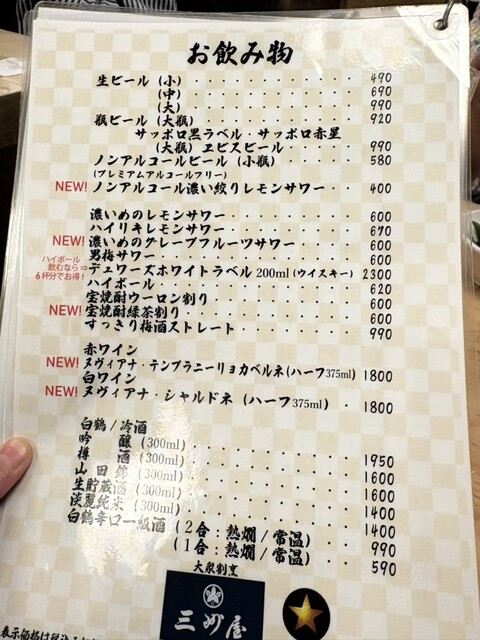 お飲み物
生ビール (小) 490
(中) 690
(大) 990
瓶ビール (大瓶) 920
サッポロ黒ラベル・サッポロ赤星
(大瓶) ヱビスビール 990
ノンアルコールビール (小瓶) 580
(プレミアムアルコールフリー)
NEW! ノンアルコール濃い絞りレモンサワー 400
濃いめのレモンサワー 600
ハイリキレモンサワー 670
NEW! 濃いめのグレープフルーツサワー 600
男梅サワー 600
ハイボール
飲むなら⇒
6杯分でお得!
デュワーズホワイトラベル 200ml (ウイスキー) 2300
ハイボール 620
宝焼酎ウーロン割り 600
NEW! 宝焼酎緑茶割り 600
すっきり梅酒ストレート 990
赤ワイン
NEW! ヌヴィアナ・テンプラニーリョカベルネ(ハーフ375ml) 1800
白ワイン
NEW! ヌヴィアナ・シャルドネ (ハーフ375ml) 1800
白鶴 / 冷酒
吟醸 (300ml) 1950
樽酒 (300ml) 1600
山田錦 (300ml) 1600
生貯蔵酒 (300ml) 1400
淡麗純米 (300ml) 1400
白鶴辛口一級酒 (2合:熱燗 / 常温) 990
(1合:熱燗 / 常温) 590
大衆割烹
三州屋
表示価格は税込